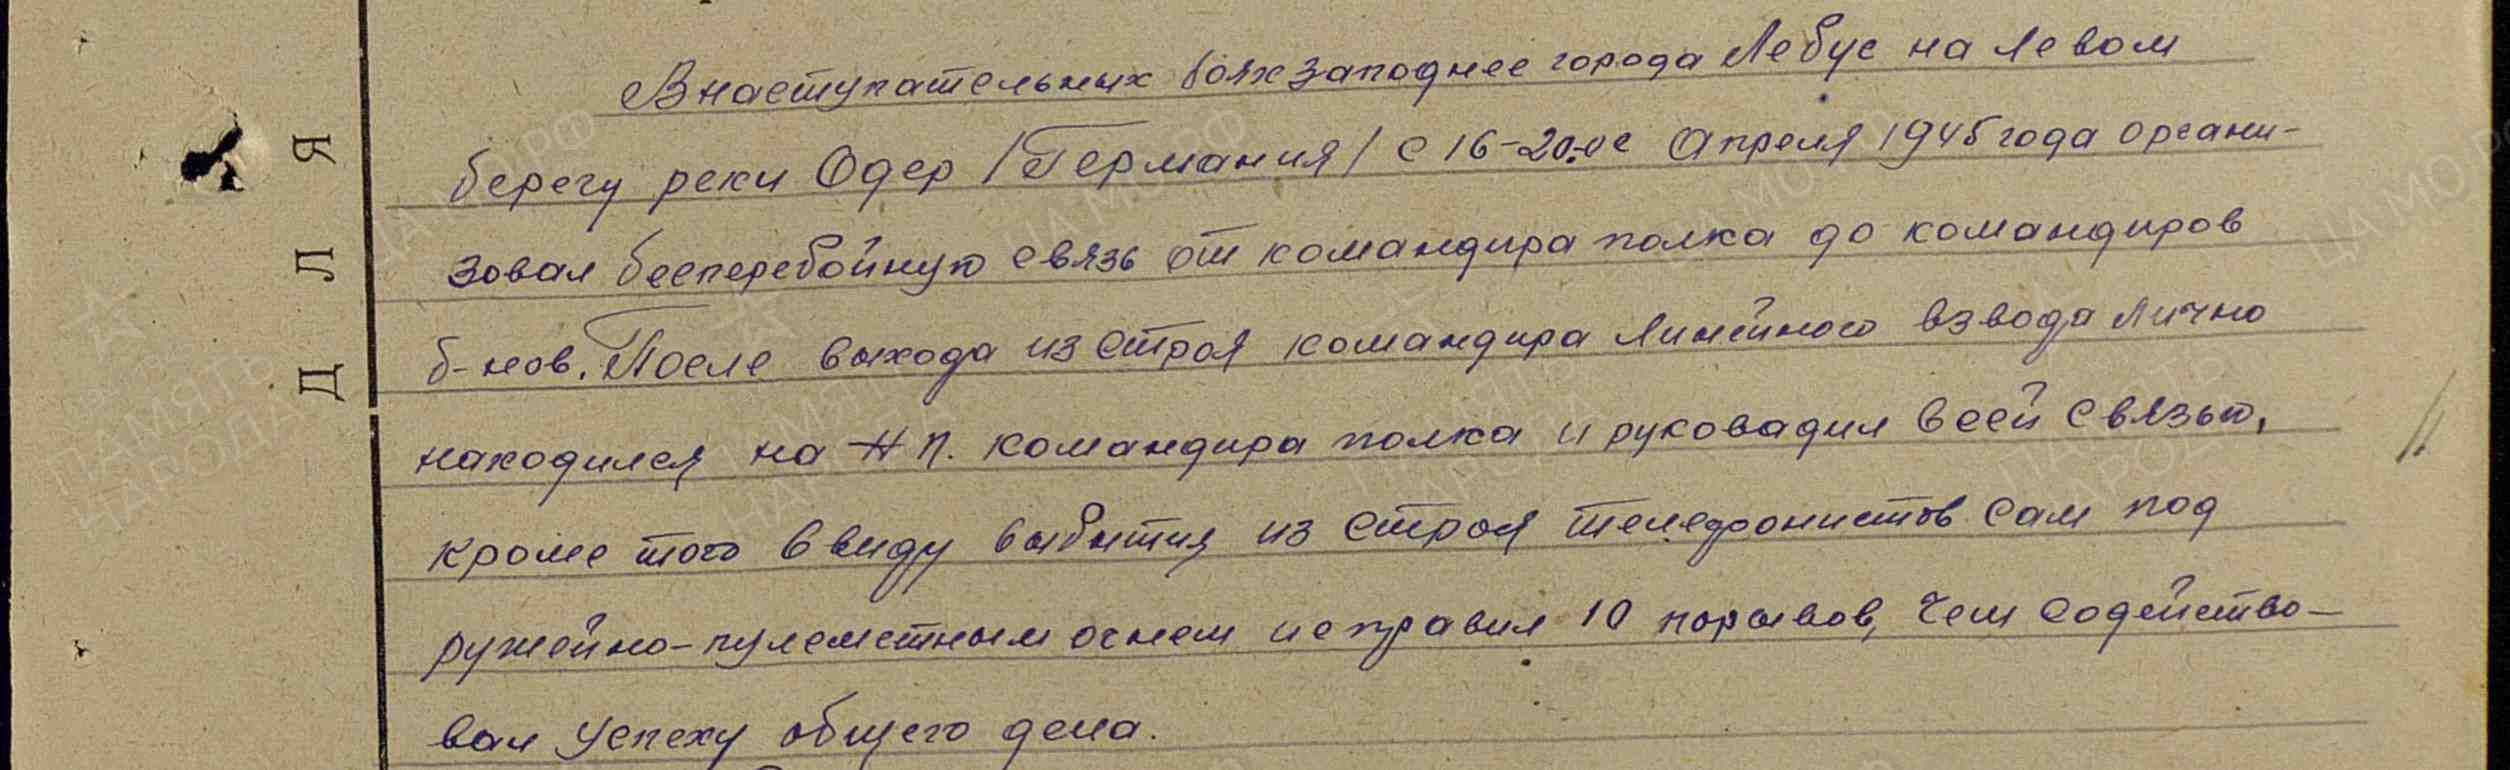 В наступательных боях западнее города Лебус на левом
берегу реки Одер /Германия/ с 16-20.ое Апреля 1945 года органи-
зовал бесперебойную связь от командира полка до командиров
б-нов. После выхода из строя командира линейного взвода лично
находился на НП. командира полка и руковадил всей связью,
кроме того ввиду выбытия из строя телефонистов сам под
ружейно-пулеметным огнем исправил 10 порывов, чем содейство-
вал успеху общего дела.
ДЛЯ
ПАМЯТЬ
НАРОДА
ЦА МО.РФ